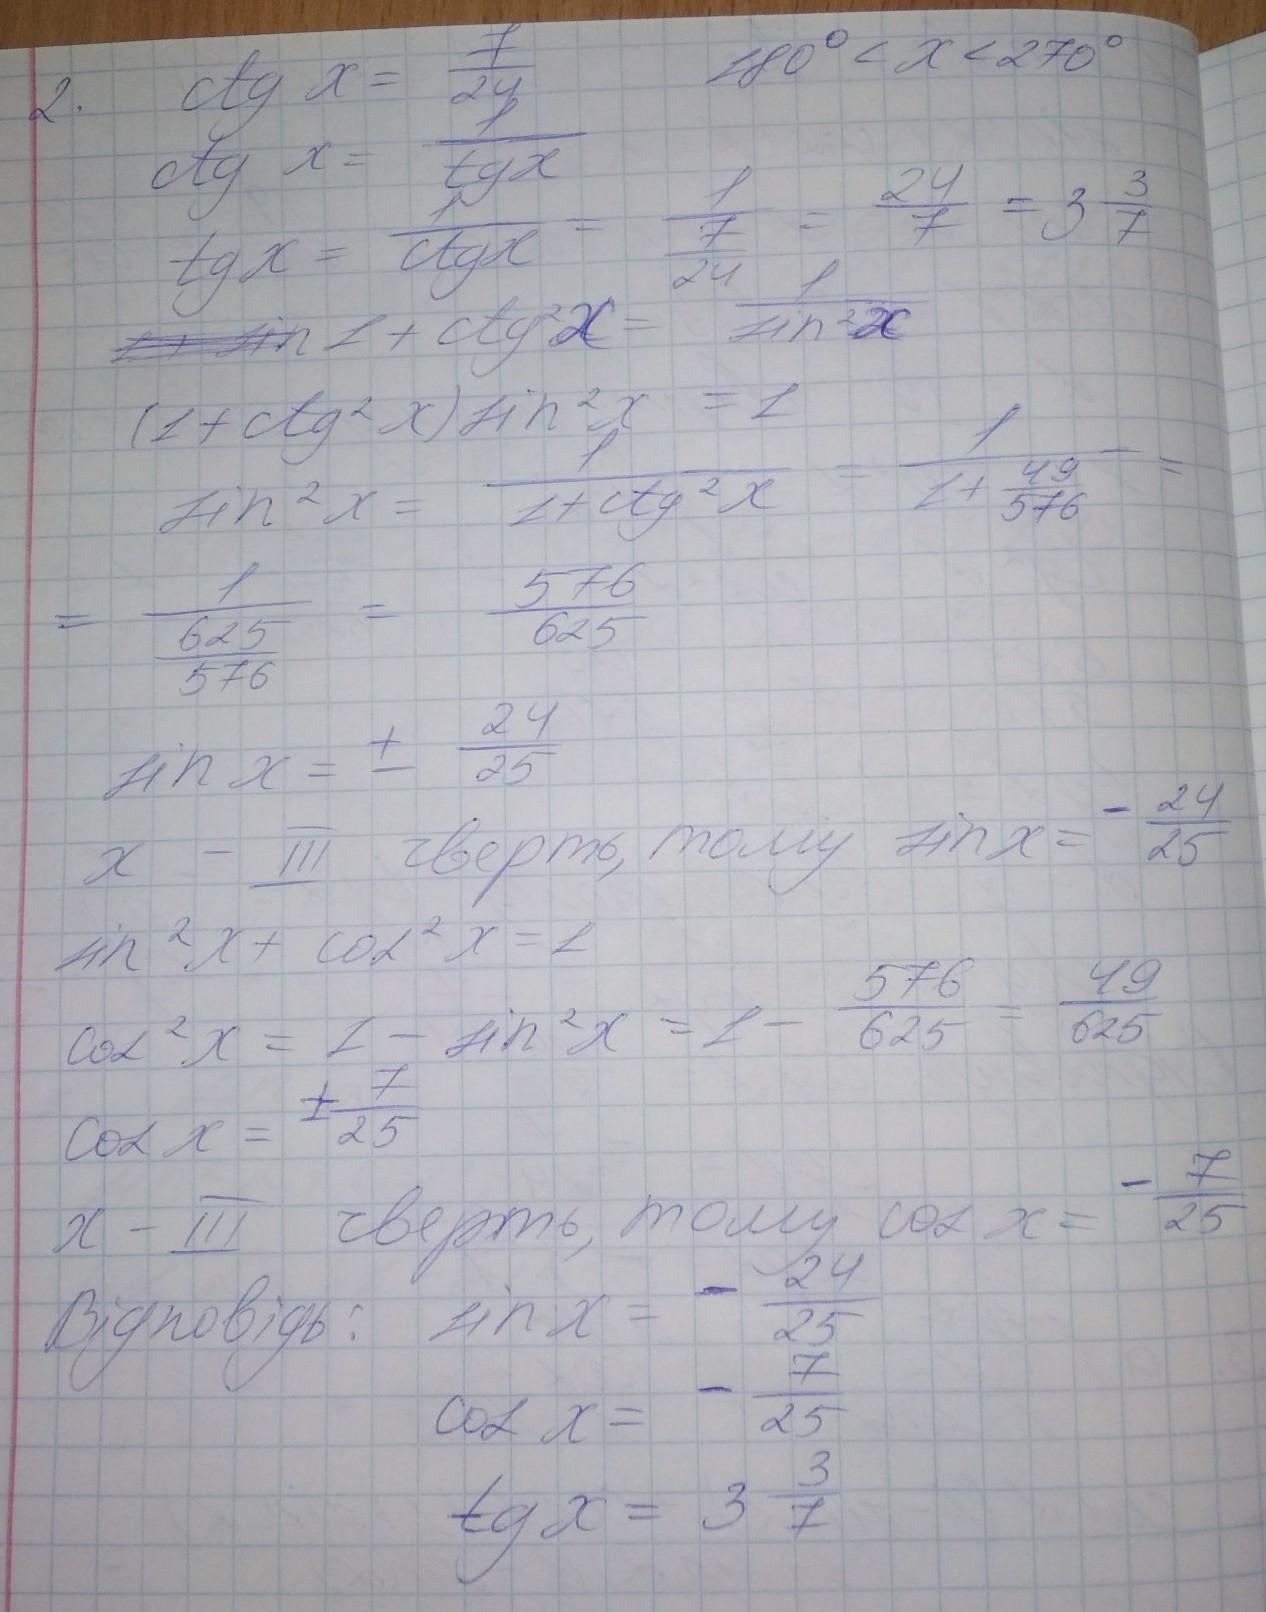 2. ctg x = 7/24 180° < x < 270°
ctg x = 1/tgx
tgx = 1/ctgx = 1/(7/24) = 24/7 = 3 3/7
1 + ctg²x = 1/sin²x
(1 + ctg²x) sin²x = 1
sin²x = 1/(1 + ctg²x) = 1/(1 + 49/576) =
= 1/(625/576) = 576/625
sin x = ± 24/25
x - III чверть, тому sin x = - 24/25
sin²x + cos²x = 1
cos²x = 1 - sin²x = 1 - 576/625 = 49/625
cos x = ± 7/25
x - III чверть, тому cos x = - 7/25
Відповідь: sin x = - 24/25
cos x = - 7/25
tg x = 3 3/7